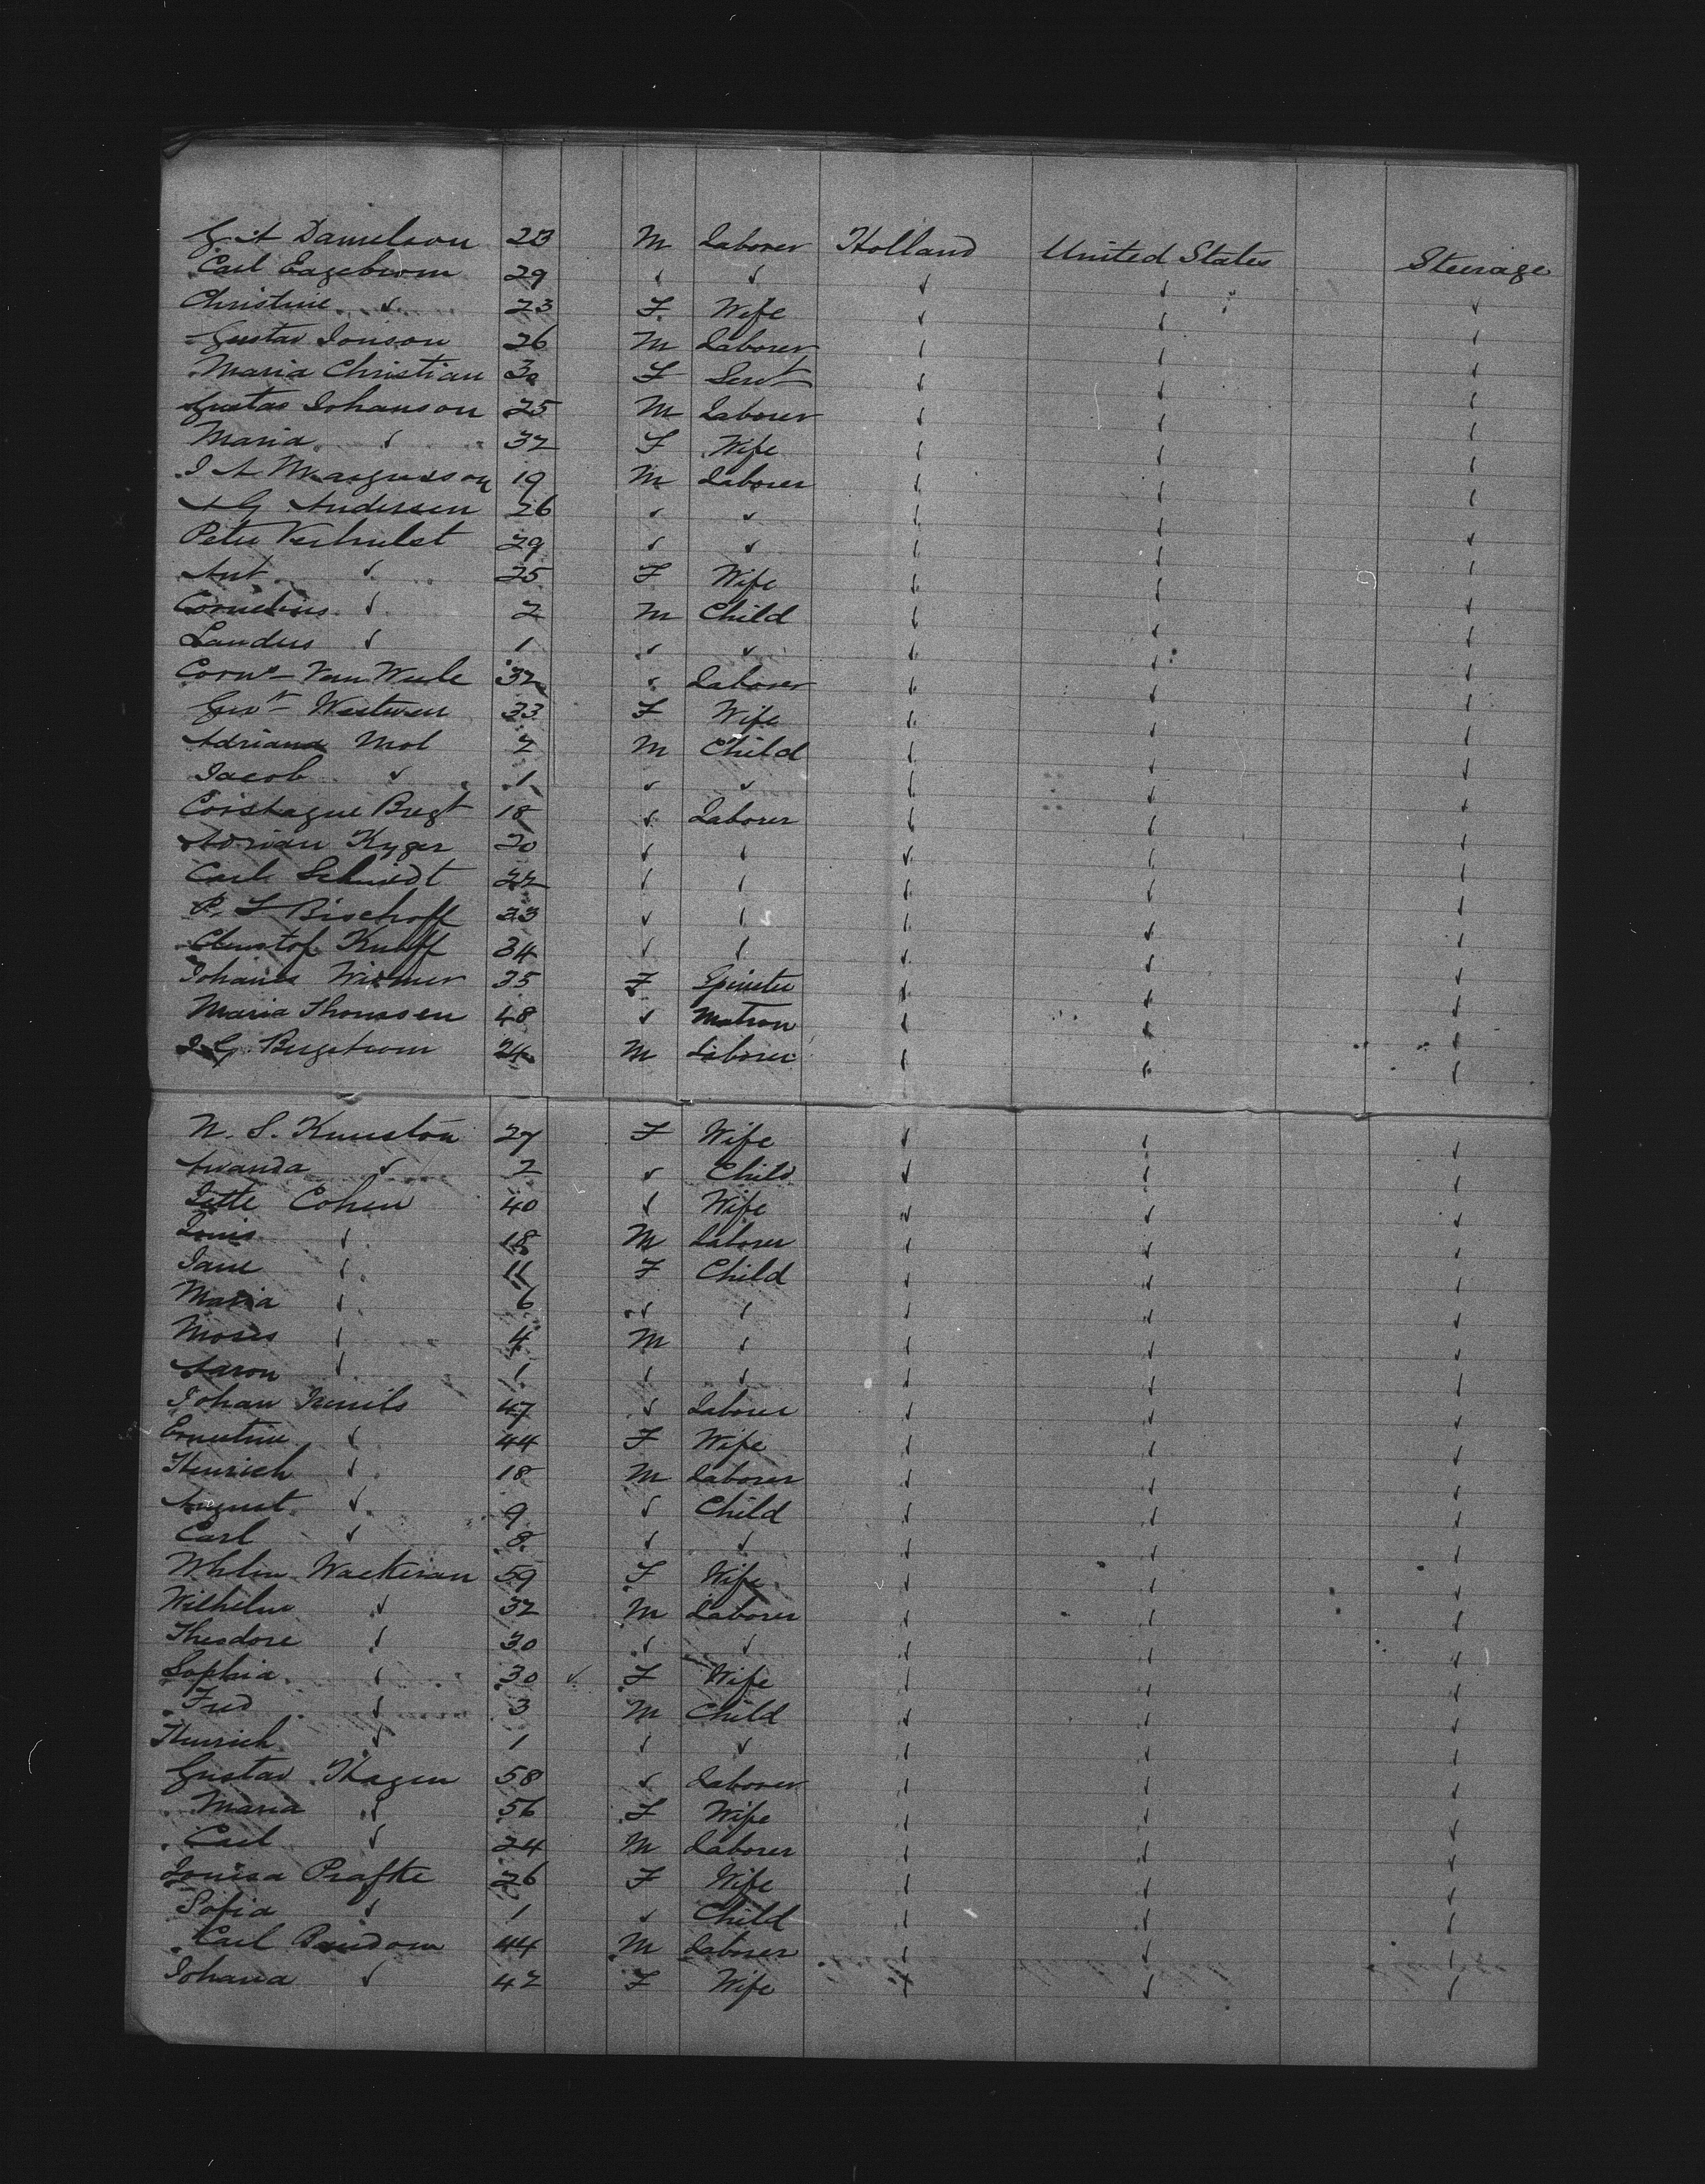 Danielson 23 M Laborer Holland United States Steerage
Carl Eagebrom 29 ✓ ✓ ✓ ✓
Christine ✓ 23 F Wife ✓ ✓ ✓
Gustav Jonson 26 M Laborer ✓ ✓ ✓
Maria Christian 30 F Servt ✓ ✓ ✓
Gustav Johanson 25 M Laborer ✓ ✓ ✓
Maria ✓ 32 F Wife ✓ ✓ ✓
J A Margusson 19 M Laborer ✓ ✓ ✓
A G Andersen 26 ✓ ✓ ✓ ✓ ✓
Peter Verhulst 29 ✓ ✓ ✓ ✓ ✓
Ant ✓ 25 F Wife ✓ ✓ ✓
Cornelius ✓ 2 M Child ✓ ✓ ✓
Landus ✓ 1 ✓ ✓ ✓ ✓ ✓
Corns Van Weele 32 ✓ Laborer ✓ ✓ ✓
Westween 33 F Wife ✓ ✓ ✓
Adriana Mol 2 M Child ✓ ✓ ✓
Jacob ✓ 1 ✓ ✓ ✓ ✓ ✓
Corstague Bregt 18 ✓ Laborer ✓ ✓ ✓
Adrian Kyger 20 ✓ ✓ ✓ ✓ ✓
Carl Schmidt 22 ✓ ✓ ✓ ✓ ✓
P. F Bischoff 33 ✓ ✓ ✓ ✓ ✓
Christof Knuff 34 ✓ ✓ ✓ ✓ ✓
Johanes Widmer 35 F Spinster ✓ ✓ ✓
Maria Thomsen 48 ✓ Matron ✓ ✓ ✓
J G Bergstrom 24 M Laborer ✓ ✓ ✓
N. S. Knuston 27 F Wife ✓ ✓ ✓
Awanda ✓ 2 ✓ Child ✓ ✓ ✓
Jette Cohen 40 ✓ Wife ✓ ✓ ✓
Louis ✓ 18 M Laborer ✓ ✓ ✓
Jane ✓ 11 F Child ✓ ✓ ✓
Maria ✓ 6 ✓ ✓ ✓ ✓ ✓
Moses ✓ 4 M ✓ ✓ ✓ ✓
Aaron ✓ 1 ✓ ✓ ✓ ✓ ✓
Johan 47 ✓ Laborer ✓ ✓ ✓
Ernestine ✓ 44 F Wife ✓ ✓ ✓
Heinrich ✓ 18 M Laborer ✓ ✓ ✓
August ✓ 9 ✓ Child ✓ ✓ ✓
Carl ✓ 8 ✓ ✓ ✓ ✓ ✓
Whlm Wackeran 59 F Wife ✓ ✓ ✓
Wilhelm ✓ 32 M Laborer ✓ ✓ ✓
Theodore ✓ 30 ✓ ✓ ✓ ✓ ✓
Sophia ✓ 30 ✓ F Wife ✓ ✓ ✓
Fred ✓ 3 M Child ✓ ✓ ✓
Heinrich ✓ 1 ✓ ✓ ✓ ✓ ✓
Gustav Hagen 58 ✓ Laborer ✓ ✓ ✓
Maria ✓ 56 F Wife ✓ ✓ ✓
Carl ✓ 24 M Laborer ✓ ✓ ✓
Louisa Prafke 26 F Wife ✓ ✓ ✓
Sofia ✓ 1 ✓ Child ✓ ✓ ✓
Carl Pandow 44 M Laborer ✓ ✓ ✓
Johana ✓ 42 F Wife ✓ ✓ ✓